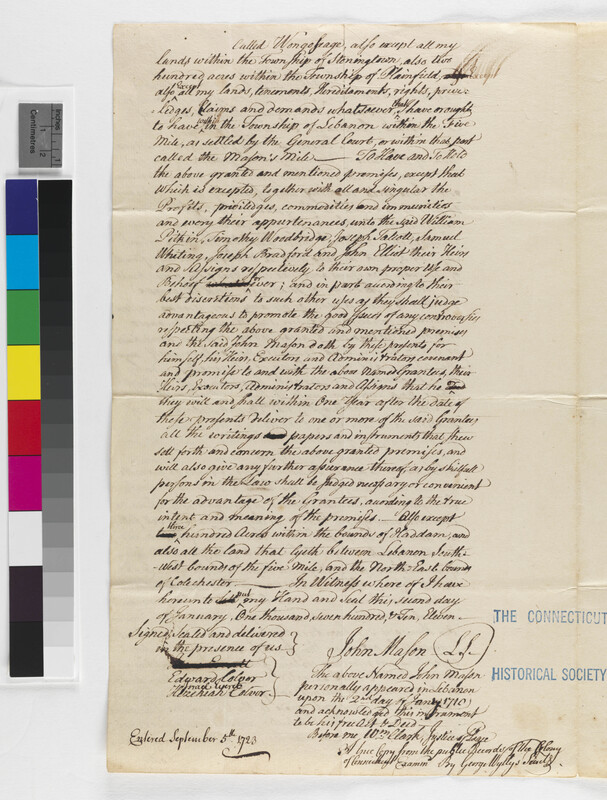 Called Wongosseage, also except all my
lands within the Township of Stonningtown, also two
hundred acres within the Township of Plainfield,
also except all my lands, tenements, Hereditaments, rights, privi-
-ledges, Claims and demands whatsoever that I have or ought
to have within in the Township of Lebanon within the Five
Mile, as settled by the General Court, or within that part
called the Mason's Mile — To Have and To Hold
the above granted and mentioned premises, except that
which is excepted, together with all and singular the
Profits, priviledges, commodities and immunities
and every their appurtenances, unto the said William
Pitkin, Timothy Woodbridge, Joseph Talcott, Samuel
Whiting, Joseph Bradford and John Elliot their Heirs
and Assigns respectively, to their own proper Use and
Behoof ever; and in part according to their
best discretions to such other uses as they shall judge
advantageous to promote the good Issues of any controversies
respecting the above granted and mentioned premises
and the said John Mason doth by these presents for
himself, his Heirs, Executors and Administrators, covenant
and promise to and with the above Named Grantees, their
Heirs, Executors, Administrators and Assigns that he
they will and shall within One Year after the Date of
these presents deliver to one or more of the said Grantees
all the writings papers and instruments that shew
sett forth and concern the above granted premises, and
will also give any further assurance thereof, as by skilfull
persons in the Law shall be Judged necessary or convenient
for the advantage of the Grantees, according to the true
intent and meaning of the premises — Also except
three hundred Acres within the bounds of Haddam, and
also all the land that lyeth between Lebanon South-
-West bounds of the five Mile, and the North-East bounds
of Colchester — In Witness where of I have
hereunto put my Hand and Seal this second day
of January, One thousand, Seven hundred, & Ten, Eleven.
Signed, sealed and delivered
in the presence of us
John Mason L.S.
Edward Colver
Hezekiah Colver
The above Named John Mason
personally appeared in Lebanon
upon the 2nd day of Jany 1710/
and acknowledged this instrument
to be his free Act & Deed
Before me, Wm Clark, Justice of Peace
Entered September 5th 1723
A true Copy from the public Records of the Colony
of Connecticut Examin'd By George Wyllys Secretr
THE CONNECTICUT
HISTORICAL SOCIETY
Centimetres
Inches
1
2
1